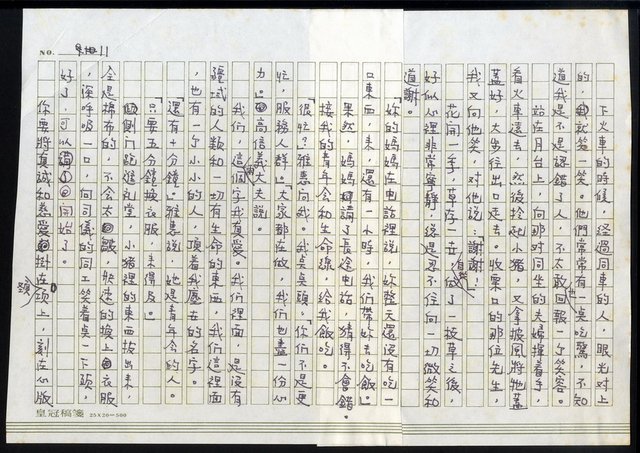 NO.
11
下火車的時候，經過同車的人，眼光對上
的，就笑一笑。他們常常有一吳吃驚，不知
道我是不是認錯了人，不太敢回報一個笑容。
站在月台上，向那对同坐的夫婦揮着手，
看火車遠去，然後拎起小猪，又拿披風將牠蓋
蓋好，大步往出口走去。收票口的那位先生，
我又向他笑，对他說：「謝謝！」
花開一季，草存一春，做了一技草之後，
好似心裡非常寧靜，總是忍不住向一切微笑和
道謝。
妳的媽媽在电話裡說，妳整天還沒有吃一
口東西，來，還有一小時，我們帶妳去吃飯。」
果然，媽媽講了長途电話，猜得不會錯。
接我的青年会和生命線，給我飯吃。
「很忙？」雅惠问我。我桌桌頭。「你們不是更
忙，服務人群。」「大家都在做，我們也盡一份心
力。」高信義大夫說。
我們，這個字我真愛。我們裡面，是沒有
聽試的人款和一切有生命的東西，我們這裡面
，也有一个小小的人，頂着我應在的名字。
「還有十分鐘。」雅惠說，她是青年会的人。
「只要五分鐘換衣服，來得及。」
側門跑進礼堂，小猪裡的東西拔出來，
全是棉布的，不会太皺，快速的換衣服
，深呼吸一口，向司儀的同工笑着桌一下頭，
好了，可以開始了。
你要將真誠和慈愛掛在頸上，刻在心版
頸
皇冠稿箋
25X20=500